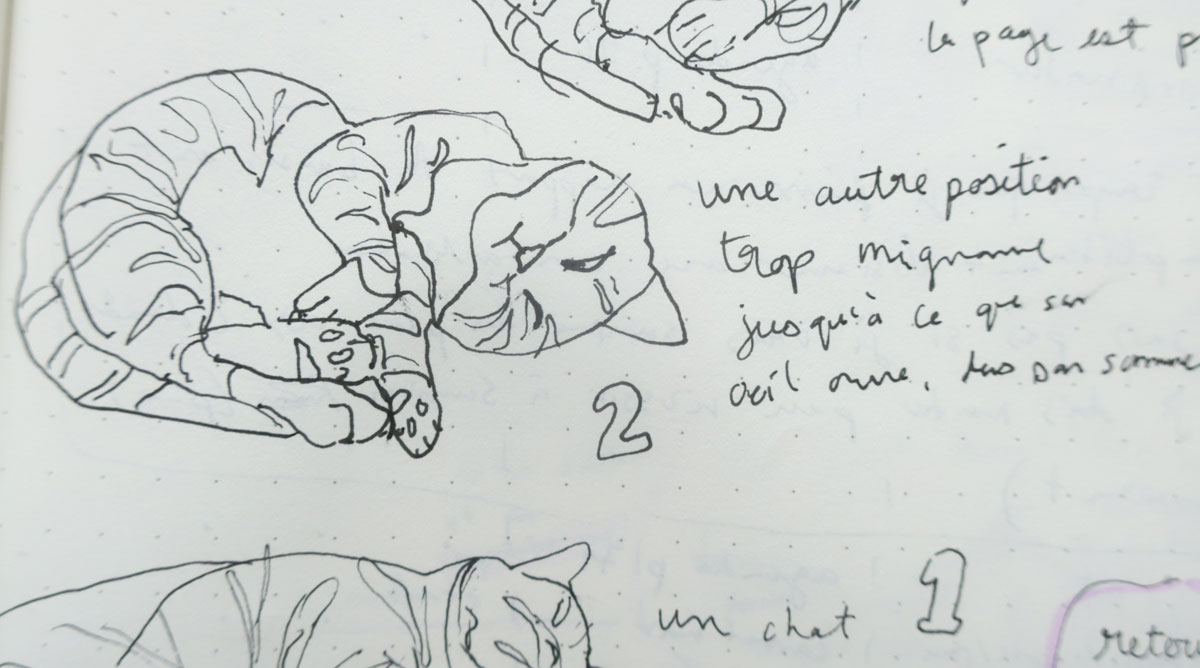 la page est p
une autre position
trop mignonne
jusqu'à ce que son
œil ouvre,
2
un chat
1
retou